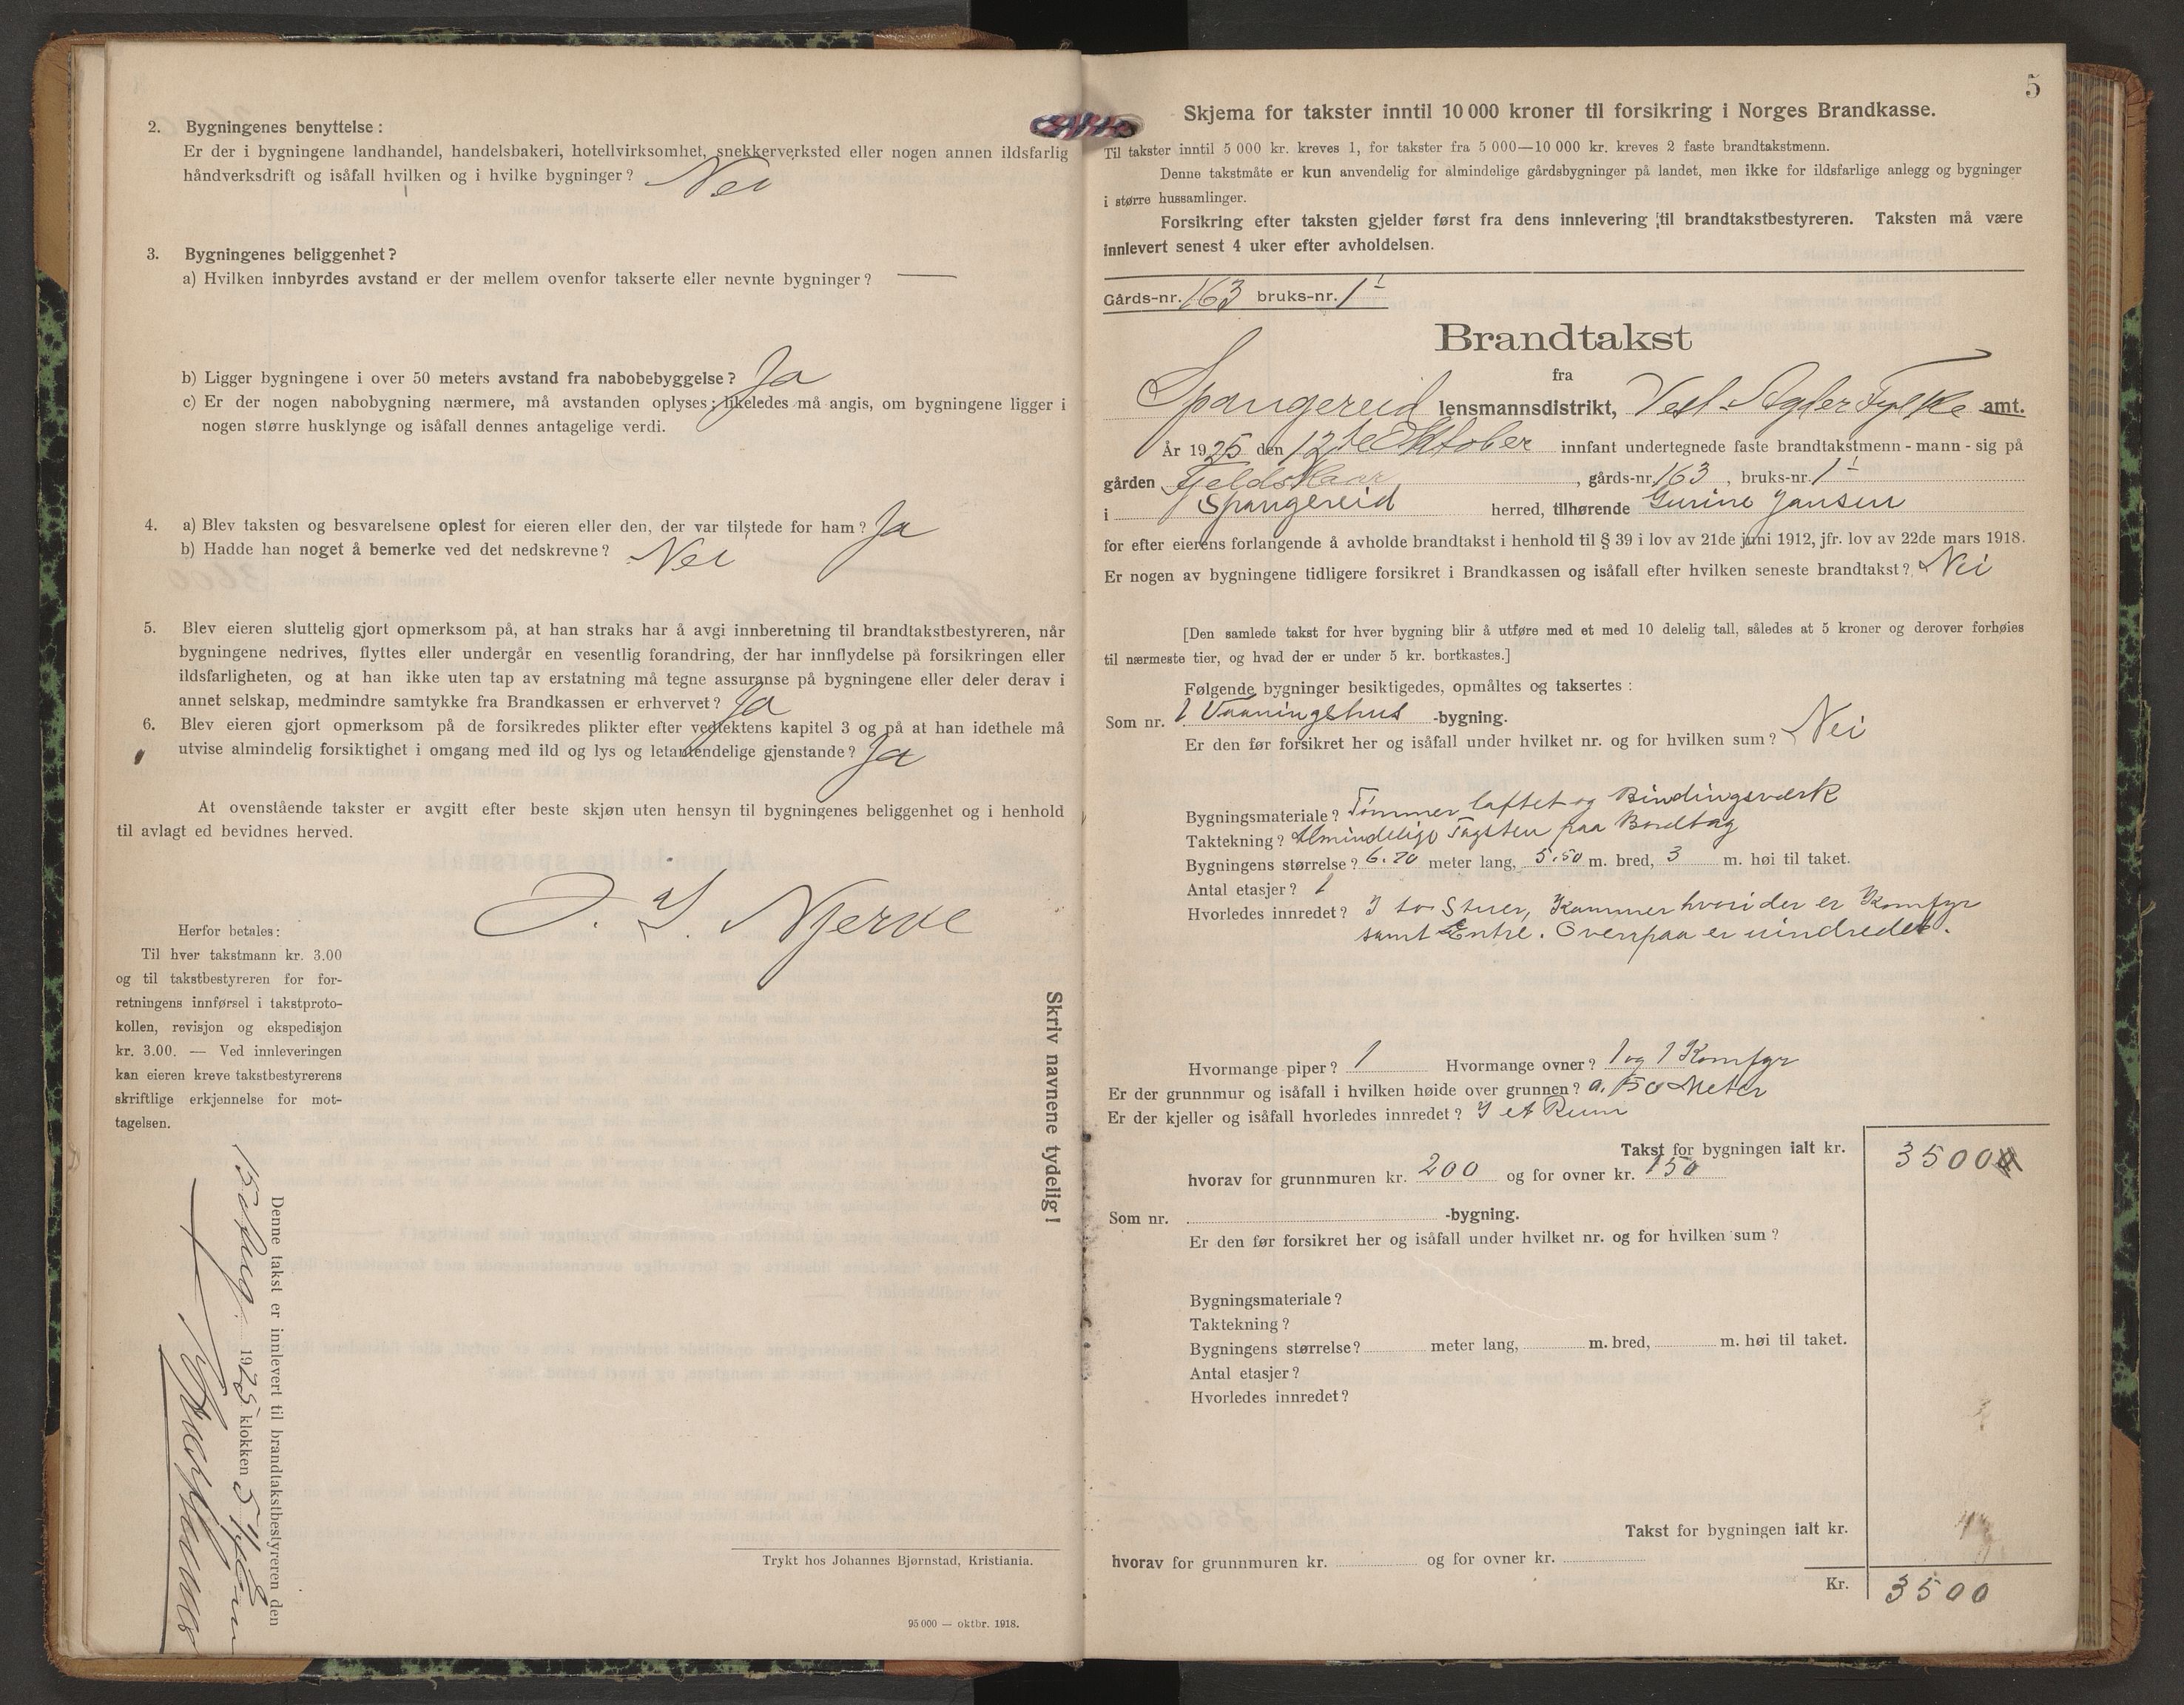 2. Bygningenes benyttelse:
Er der i bygningene landhandel, handelsbakeri, hotellvirksomhet, snekkerverksted eller nogen annen ildsfarlig
håndverksdrift og isåfall hvilken og i hvilke bygninger? Nei
3. Bygningenes beliggenhet?
a) Hvilken innbyrdes avstand er der mellem ovenfor takserte eller nevnte bygninger? —
b) Ligger bygningene i over 50 meters avstand fra nabobebyggelse? Ja
c) Er der nogen nabobygning nærmere, må avstanden oplyses; likeledes må angis, om bygningene ligger i
nogen større husklynge og isåfall dennes antagelige verdi.
4. a) Blev taksten og besvarelsene oplest for eieren eller den, der var tilstede for ham? Ja
b) Hadde han noget å bemerke ved det nedskrevne? Nei
5. Blev eieren sluttelig gjort opmerksom på, at han straks har å avgi innberetning til brandtakstbestyreren, når
bygningene nedrives, flyttes eller undergår en vesentlig forandring, der har innflydelse på forsikringen eller
ildsfarligheten, og at han ikke uten tap av erstatning må tegne assuranse på bygningene eller deler derav i
annet selskap, medmindre samtykke fra Brandkassen er erhvervet? Ja
6. Blev eieren gjort opmerksom på de forsikredes plikter efter vedtektens kapitel 3 og på at han idethele må
utvise almindelig forsiktighet i omgang med ild og lys og letantendelige gjenstande? Ja
At ovenstående takster er avgitt efter beste skjøn uten hensyn til bygningenes beliggenhet og i henhold
til avlagt ed bevidnes herved.
Njerve
Herfor betales:
Til hver takstmann kr. 3.00
og til takstbestyreren for for-
retningens innførsel i takstproto-
kollen, revisjon og ekspedisjon
kr. 3.00. — Ved innleveringen
kan eieren kreve takstbestyrerens
skriftlige erkjennelse for mot-
tagelsen.
Skriv navnene tydelig!
Denne takst er innlevert til brandtakstbestyreren den
1925 klokken 5
Trykt hos Johannes Bjørnstad, Kristiania.
95 000 — oktbr. 1918.
5
Skjema for takster inntil 10 000 kroner til forsikring i Norges Brandkasse.
Til takster inntil 5 000 kr. kreves 1, for takster fra 5 000—10 000 kr. kreves 2 faste brandtakstmenn.
Denne takstmåte er kun anvendelig for almindelige gårdsbygninger på landet, men ikke for ildsfarlige anlegg og bygninger
i større hussamlinger.
Forsikring efter taksten gjelder først fra dens innlevering til brandtakstbestyreren. Taksten må være
innlevert senest 4 uker efter avholdelsen.
Gårds-nr. 163 bruks-nr. 1
Brandtakst
fra
Spangereid lensmannsdistrikt, Vest-Agder Fylke amt.
År 1925 den 12te Oktober innfant undertegnede faste brandtakstmenn - mann - sig på
gården Fjeldskaar, gårds-nr. 163, bruks-nr. 1
i Spangereid herred, tilhørende Gurine Jansen
for efter eierens forlangende å avholde brandtakst i henhold til § 39 i lov av 21de juni 1912, jfr. lov av 22de mars 1918.
Er nogen av bygningene tidligere forsikret i Brandkassen og isåfall efter hvilken seneste brandtakst? Nei
[Den samlede takst for hver bygning blir å utføre med et med 10 delelig tall, således at 5 kroner og derover forhøies
til nærmeste tier, og hvad der er under 5 kr. bortkastes.]
Følgende bygninger besiktigedes, opmåltes og taksertes:
Som nr. 1 Vaaningshus -bygning.
Er den før forsikret her og isåfall under hvilket nr. og for hvilken sum? Nei
Bygningsmateriale? Tømmer laftet og Bindingsværk
Taktekning? Almindelige Tagsten paa Bordtag
Bygningens størrelse? 6.70 meter lang, 5.50 m. bred, 3 m. høi til taket.
Antal etasjer? 1
Hvorledes innredet? I to Stuer, Kammer hvori der er Komfyr
samt Entre. Ovenpaa er uindredet.
Hvormange piper? 1 Hvormange ovner? 1 og 1 Komfyr
Er der grunnmur og isåfall i hvilken høide over grunnen? 0.50 Meter
Er der kjeller og isåfall hvorledes innredet? I et Rum
Takst for bygningen ialt kr. 3500
hvorav for grunnmuren kr. 200 og for ovner kr. 150
Som nr. -bygning.
Er den før forsikret her og isåfall under hvilket nr. og for hvilken sum?
Bygningsmateriale?
Taktekning?
Bygningens størrelse? meter lang, m. bred, m. høi til taket.
Antal etasjer?
Hvorledes innredet?
Takst for bygningen ialt kr.
hvorav for grunnmuren kr. og for ovner kr.
Kr. 3500